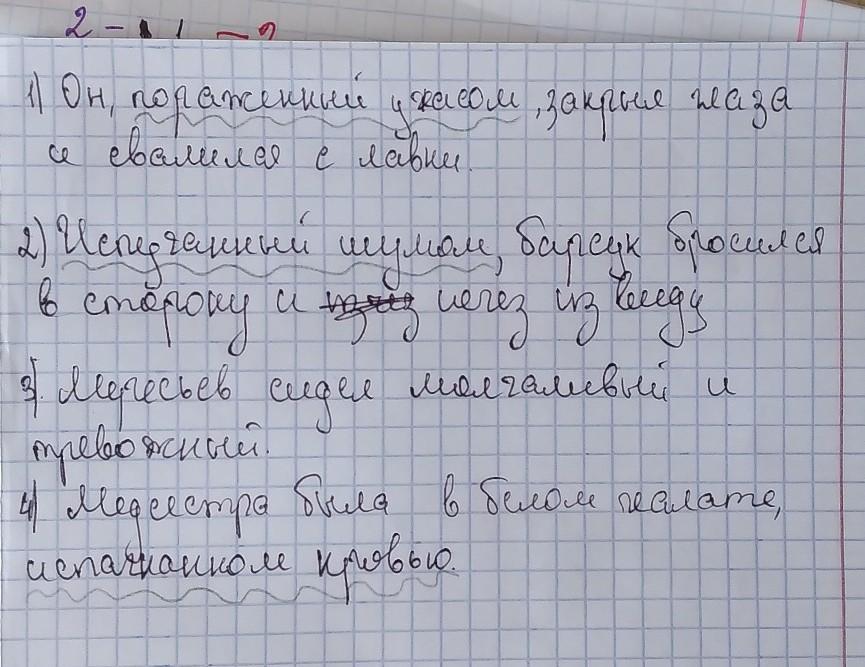 2 -
1) Он, пораженный ужасом, закрыл глаза
и свалился с лавки.
2) Испуганный шумом, барсук бросился
в сторону и исчез из виду
3). Мересьев сидел молчаливый и
тревожный.
4) Медсестра была в белом халате,
испачканном кровью.